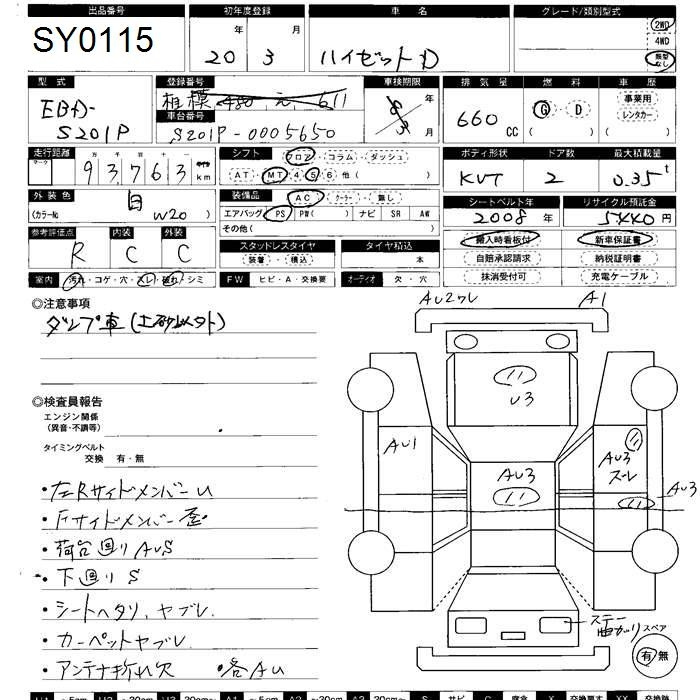 出品番号 初年度登録 車名 グレード/類別型式
SY0115 年 月 2WD
20 3 ハイゼットD 4WD
類型なし
型式 登録番号 車検期限 排気量 燃料 車歴
EBD- 相模 480 え 611 年 事業用
S201P 車台番号 660 CC G・D レンタカー
S201P-0005650 月 ( ) ( )
走行距離 シフト フロア・コラム・ダッシュ ボディ形状 ドア数 最大積載量
マーク 万 千 百 十 一 マイル
93763 km AT・MT・4・5・6 他( ) 2 0.35t
外装色 白 装備品 AC・クーラー・無し シートベルト年 リサイクル預託金
(カラーNo W20 ) エアバッグ PS PW( ) ナビ SR AW 2008年 5440円
参考評価点 内装 外装 その他( ) 搬入時看板付 新車保証書
R C C スタッドレスタイヤ タイヤ積込 自賠承認請求 納税証明書
装着・積込 本 抹消受付可 充電ケーブル
室内 汚れ・コゲ・穴・スレ・破れ・シミ FW ヒビ・A・交換要 オーディオ 欠・穴
◎注意事項
ダンプ車(土砂以外)
◎検査員報告
エンジン関係
(異音・不調等)
タイミングベルト
交換 有・無
・左Rサイドメンバーu
・Fサイドメンバー歪
・荷台回りAUS
・下回りS
・シートヘタリ、ヤブレ
・カーペットヤブレ
・アンテナ折れ欠 ・各AU
AU2ワレ A1
U3
AU1 AU3 スレ
AU3
AU3
ステー曲がり
スペア
有 無